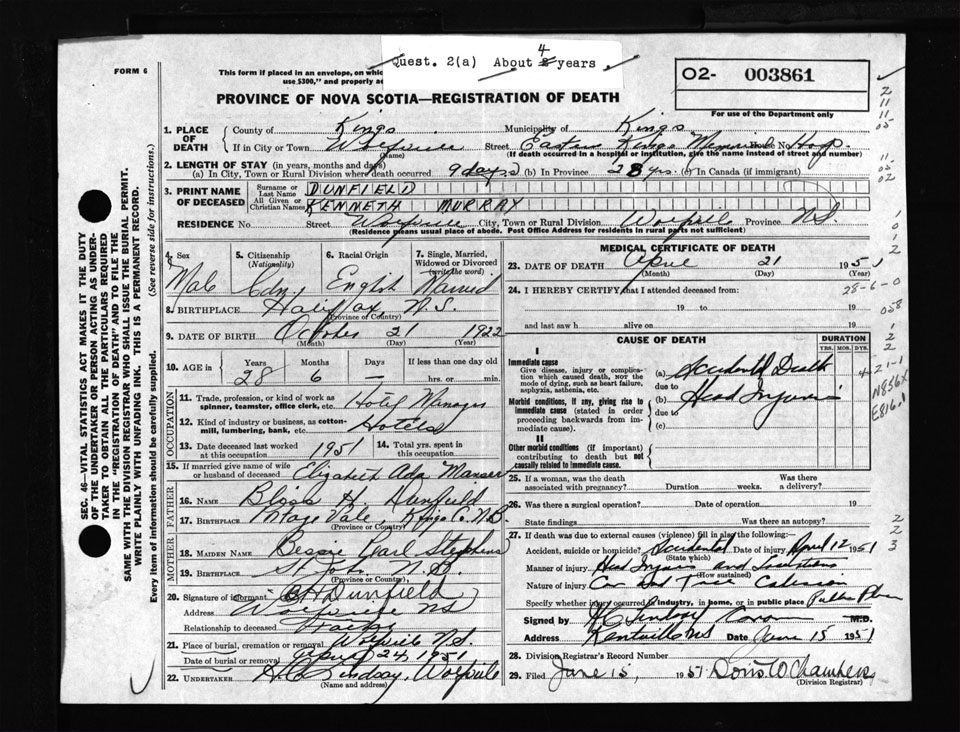 Quest. 2(a) About 4 8 years
FORM 6
This form if placed in an envelope, on whic
use $300," and properly ad
O2- 003861
PROVINCE OF NOVA SCOTIA—REGISTRATION OF DEATH
For use of the Department only
SEC. 46—VITAL STATISTICS ACT MAKES IT THE DUTY OF THE UNDERTAKER OR PERSON ACTING AS UNDERTAKER TO OBTAIN ALL THE PARTICULARS REQUIRED IN THE "REGISTRATION OF DEATH" AND TO FILE THE SAME WITH THE DIVISION REGISTRAR WHO SHALL ISSUE THE BURIAL PERMIT.
WRITE PLAINLY WITH UNFADING INK. THIS IS A PERMANENT RECORD.
Every item of information should be carefully supplied. (See reverse side for instructions.)
1. PLACE OF DEATH County of Kings Municipality of Kings
If in City or Town Wolfville Street Eastern Kings Memorial House No. Hosp.
(Name) (If death occurred in a hospital or institution, give the name instead of street and number)
2. LENGTH OF STAY (in years, months and days)
(a) In City, Town or Rural Division where death occurred 9 days (b) In Province 28 yrs. (c) In Canada (if immigrant)
3. PRINT NAME OF DECEASED Surname or Last Name DUNFIELD
All Given or Christian Names KENNETH MURRAY
RESIDENCE No. Street Wolfville City, Town or Rural Division Wolfville Province N.S.
(Residence means usual place of abode. Post Office Address for residents in rural parts not sufficient)
4. Sex Male
5. Citizenship (Nationality) Cdn.
6. Racial Origin English
7. Single, Married, Widowed or Divorced (write the word) Married
8. BIRTHPLACE Halifax N.S.
(Province or Country)
9. DATE OF BIRTH October 21 1922
(Month) (Day) (Year)
10. AGE in Years 28 Months 6 Days — If less than one day old hrs. or min.
OCCUPATION
11. Trade, profession, or kind of work as spinner, teamster, office clerk, etc. Hotel Manager
12. Kind of industry or business, as cotton-mill, lumbering, bank, etc. Hotels
13. Date deceased last worked at this occupation 1951 14. Total yrs. spent in this occupation
15. If married give name of wife or husband of deceased Elizabeth Ada
FATHER
16. NAME H. Dunfield
17. BIRTHPLACE Vale Kings Co. N.B.
(Province or Country)
MOTHER
18. MAIDEN NAME Bessie Pearl Stephens
19. BIRTHPLACE St. John N.B.
(Province or Country)
20. Signature of informant BH Dunfield
Address Wolfville NS
Relationship to deceased Father
21. Place of burial, cremation or removal Wolfville N.S.
Date of burial or removal April 24, 1951
22. UNDERTAKER H.C. Lindsay, Wolfville
(Name and address)
MEDICAL CERTIFICATE OF DEATH
23. DATE OF DEATH April 21 1951
(Month) (Day) (Year)
24. I HEREBY CERTIFY that I attended deceased from:
19 to 19
and last saw h alive on 19
CAUSE OF DEATH
DURATION
YRS. MOS. DYS.
I
Immediate cause
Give disease, injury or complication which caused death, NOT the mode of dying, such as heart failure, asphyxia, asthenia, etc.
(a) Accidental Death
due to
Morbid conditions, if any, giving rise to immediate cause (stated in order proceeding backwards from immediate cause).
(b) Head Injuries
due to
(c)
II
Other morbid conditions (if important) contributing to death but not causally related to immediate cause.
25. If a woman, was the death associated with pregnancy? Duration weeks. Was there a delivery?
26. Was there a surgical operation? Date of operation 19
State findings Was there an autopsy?
27. If death was due to external causes (violence) fill in also the following:
Accident, suicide or homicide? Accidental Date of injury April 12 1951
(State which)
Manner of injury Head Injuries and Lacerations
(How sustained)
Nature of injury Car And Collision
Specify whether injury occurred in industry, in home, or in public place Public Place
Signed by Lindsay M.D.
Address Kentville NS Date June 15 1951
28. Division Registrar's Record Number
29. Filed June 15, 1951 Doris W Chambers
(Division Registrar)
2
11
11
05
11-
05
02
1
0
1
2
28-6-0
058
1
2
2
4-21-1
N856X
E816.1
2
2
3